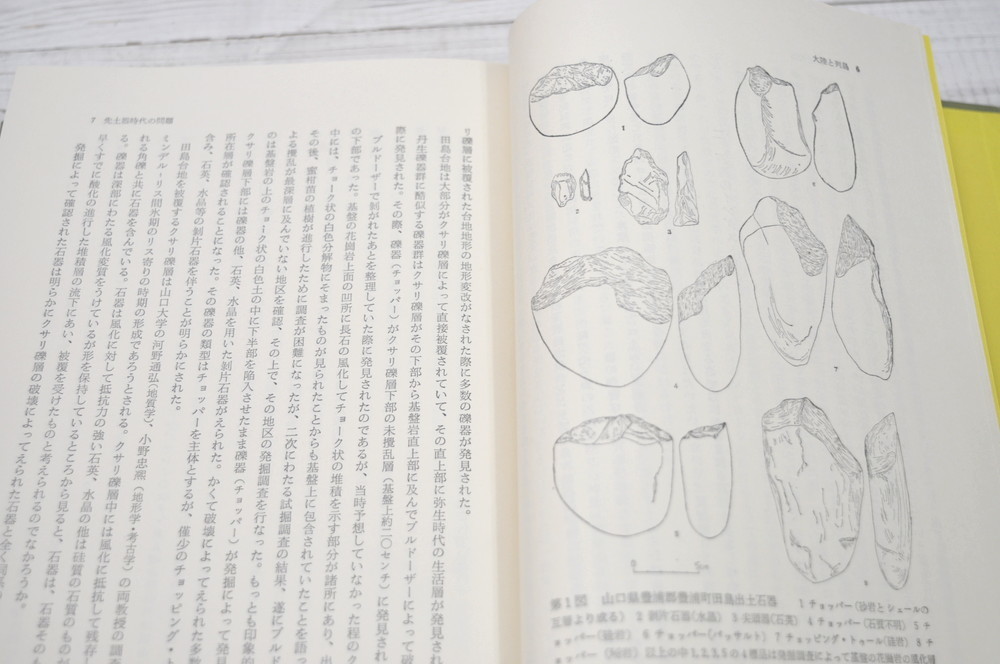 大陸と列島 6
1
2
3
4
5
6
7
8
5cm
第1図 山口県豊浦郡豊浦町田島出土石器 1 チョッパー(砂岩とシュールの
互層より成る) 2 剥片石器(水晶) 3 尖頭器(石英) 4 チョッパー(石質不明) 5 チ
ョッパー(砂岩) 6 チョッパー(バッサルト) 7 チョッピング・トゥール(硅岩) 8 チ
7 先土器時代の問題
リ礫層に被覆された台地地形の地形変改がなされた際に多数の礫器が発見された。
田島台地は大部分がクサリ礫層によって直接被覆されていて、その直上部に弥生時代の生活層が発見され
丹生礫器群に酷似する礫器群はクサリ礫層がその下部から基盤岩直上部に及んでブルドーザーによって破
際に発見された。その際、礫器(チョッパー)がクサリ礫層下部の未攪乱層(基盤上約二〇センチ)に発見
ブルドーザーで剥がれたあとを整理していた際に発見されたのであるが、当時予想していなかった程の
の下部であった。基盤の花崗岩上面の凹所に長石の風化してチョーク状の堆積を示す部分が諸所にあり、出
中には、チョーク状の白色分解物にそまったものが見られたことからも基盤上に包含されていたことを語っ
その後、蜜柑苗の植樹が進行したために調査が困難になったが、二次にわたる試掘調査の結果、遂にブルド
よる攪乱が最深層に及んでいない地区を確認、その上で、その地区の発掘調査を行なった。もっとも印象的
のは基盤岩の上のチョーク状の白色土の中に下半部を陥入させたまま礫器(チョッパー)が発掘によって発見
クサリ礫層下部には礫器の他、石英、水晶を用いた剥片石器がえられた。かくて破壊によってえられた多数
所在層が確認されることになった。その礫器の類型はチョッパーを主体とするが、僅少のチョッピング・ト
含み、石英、水晶等の剥片石器を伴うことが明らかにされた。
田島台地を被覆するクサリ礫層は山口大学の河野通弘(地質学)、小野忠凞(地形学・考古学)の両教授の調査
ミンデル−リス間氷期のリス寄りの時期の形成であろうとされる。クサリ礫層中には風化に抵抗して残存し
れる角礫と共に石器を含んでいる。石器は風化に対して抵抗力の強い石英、水晶の他は硅質の石質のものが
る。礫器は深部にわたる風化変質をうけているが形を保持しているところから見ると、石器は、石器そのも
早くすでに酸化の進行した堆積層の流下にあい、被覆を受けたものと考えられるのでなかろうか。
発掘によって確認された石器は明らかにクサリ礫層の破壊によってえられた石器と全く